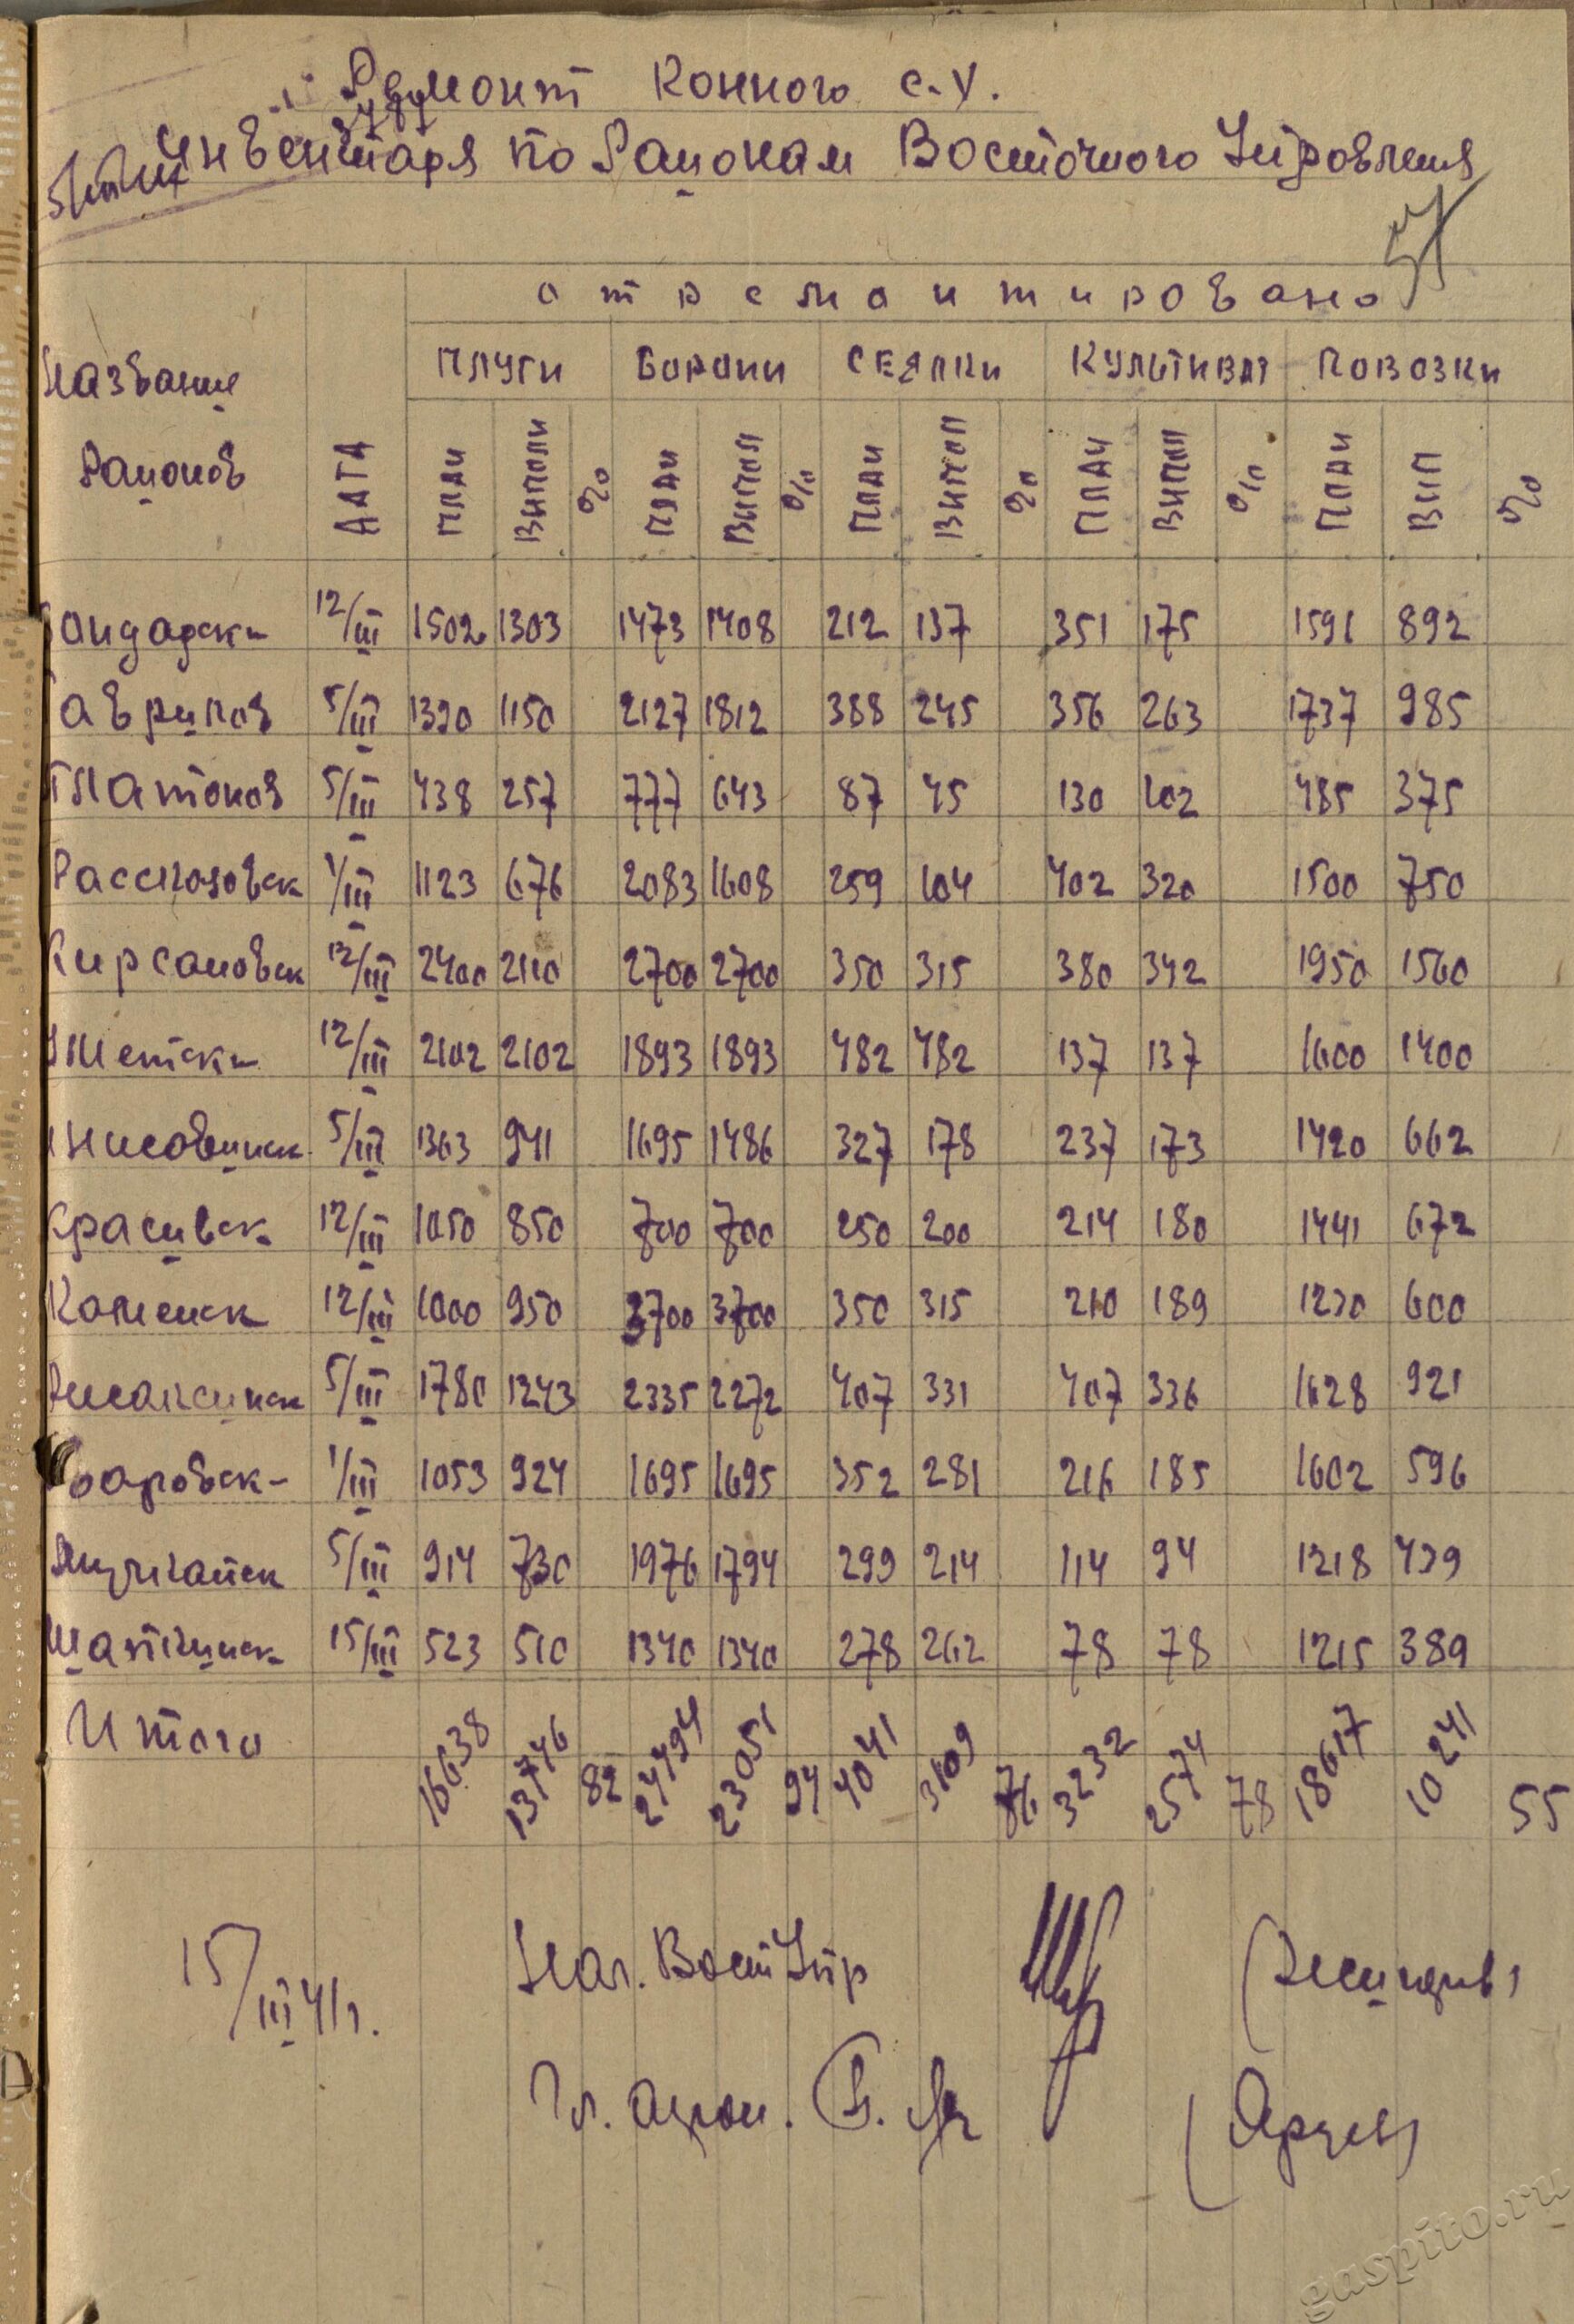 Ремонт Конного с.х.
Инвентаря по Районам Восточного Управления
отремонтировано
Название Районов ДАТА ПЛУГИ БОРОНИ СЕЯЛКИ КУЛЬТИВАТ ПОВОЗКИ
ПЛАН ВИПОЛН % ПЛАН ВИПОЛ % ПЛАН ВИПОЛ % ПЛАН ВИПОЛ % ПЛАН ВИП %
Бондарски 12/III 1502 1303 1473 1408 212 137 351 175 1591 892
Гаврилов 5/III 1390 1150 2127 1812 388 245 356 263 1737 985
Платонов 5/III 438 257 777 643 87 45 130 102 485 375
Рассказовск 1/III 1123 676 2083 1608 259 104 402 320 1500 750
Кирсановск 12/III 2400 2110 2700 2700 350 315 380 342 1950 1560
Умётски 12/III 2102 2102 1893 1893 482 482 137 137 1600 1400
Инжавинск 5/III 1363 941 1695 1486 327 178 237 173 1420 662
Красивск 12/III 1050 850 700 700 250 200 214 180 1441 672
Каменск 12/III 1000 950 3700 3700 350 315 210 189 1230 600
Ржаксинск 5/III 1780 1243 2335 2272 407 331 407 336 1628 921
Уваровск- 1/III 1053 924 1695 1695 352 281 216 185 1602 596
Мучкапск 5/III 914 730 1976 1794 299 214 114 94 1218 439
Шапкинск 15/III 523 510 1340 1340 278 262 78 78 1215 389
Итого 16638 13746 82 24494 23051 94 4041 3109 76 3232 2574 78 18617 10241 55
15/III 41г. Нач. ВостУпр
Гл. агрон.
gaspito.ru